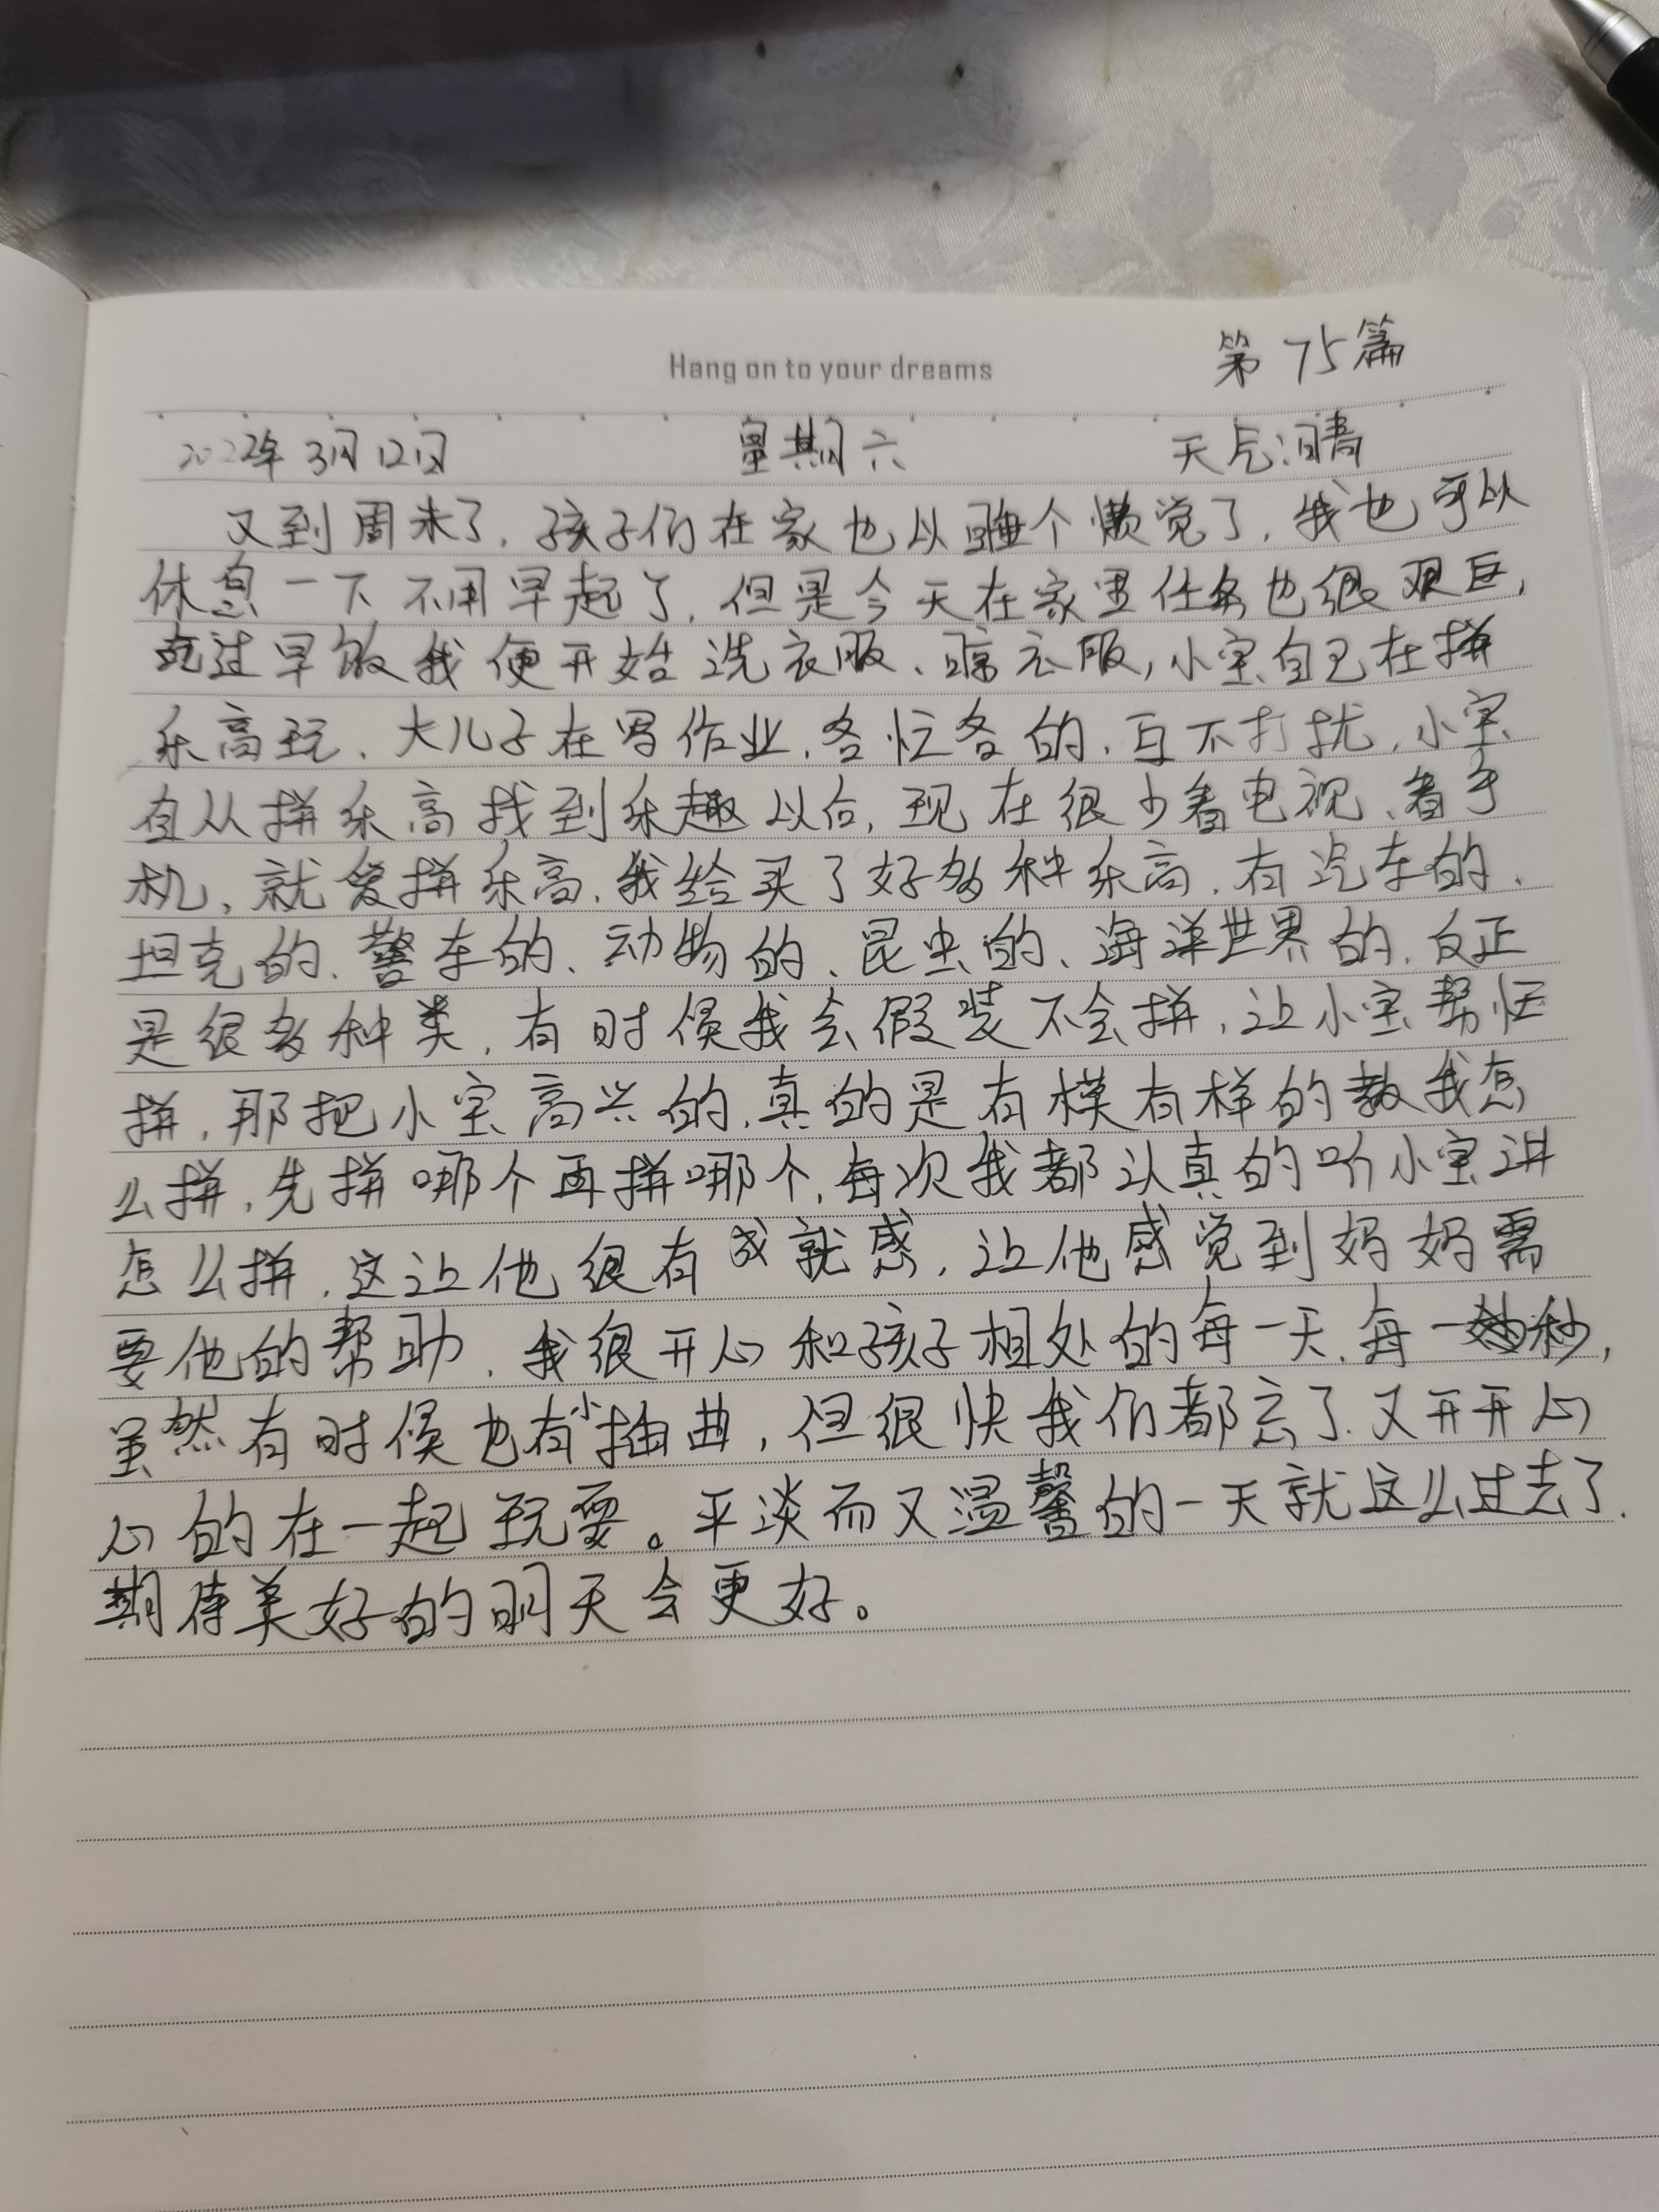 Hang on to your dreams
第75篇
2022年3月12日 星期六 天气:晴
又到周末了,孩子们在家也以睡个懒觉了,我也可以
休息一下不用早起了,但是今天在家里任务也很艰巨,
吃过早饭我便开始洗衣服、晾衣服,小宝自己在拼
乐高玩、大儿子在写作业,各忙各的,互不打扰,小宝
自从拼乐高找到乐趣以后,现在很少看电视、看手
机,就爱拼乐高,我给买了好多种乐高,有汽车的、
坦克的、警车的、动物的、昆虫的、海洋世界的,反正
是很多种类,有时候我会假装不会拼,让小宝帮忙
拼,那把小宝高兴的,真的是有模有样的教我怎
么拼,先拼哪个再拼哪个,每次我都认真的听小宝讲
怎么拼,这让他很有成就感,让他感觉到妈妈需
要他的帮助,我很开心和孩子相处的每一天、每一秒,
虽然有时候也有小插曲,但很快我们都忘了又开开心
心的在一起玩耍。平淡而又温馨的一天就这么过去了.
期待美好的明天会更好。